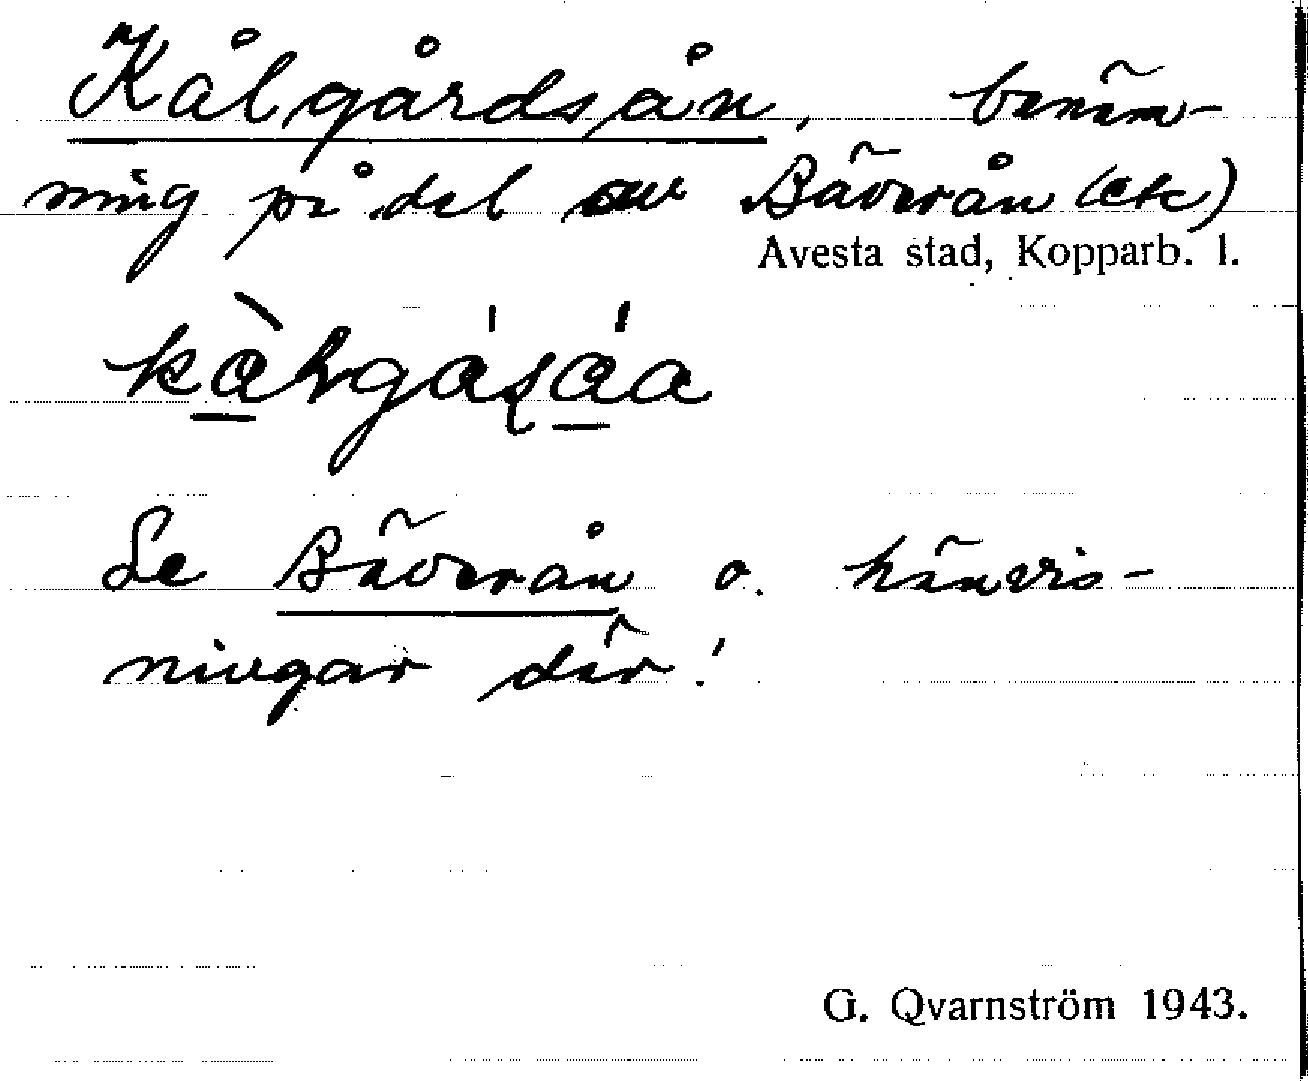 Kålgårdsån, benäm-
ning på del av Bäverån (etc)
Avesta stad, Kopparb. l.
Se Bäverån o. hänvis-
ningar där!
G. Qvarnström 1943.